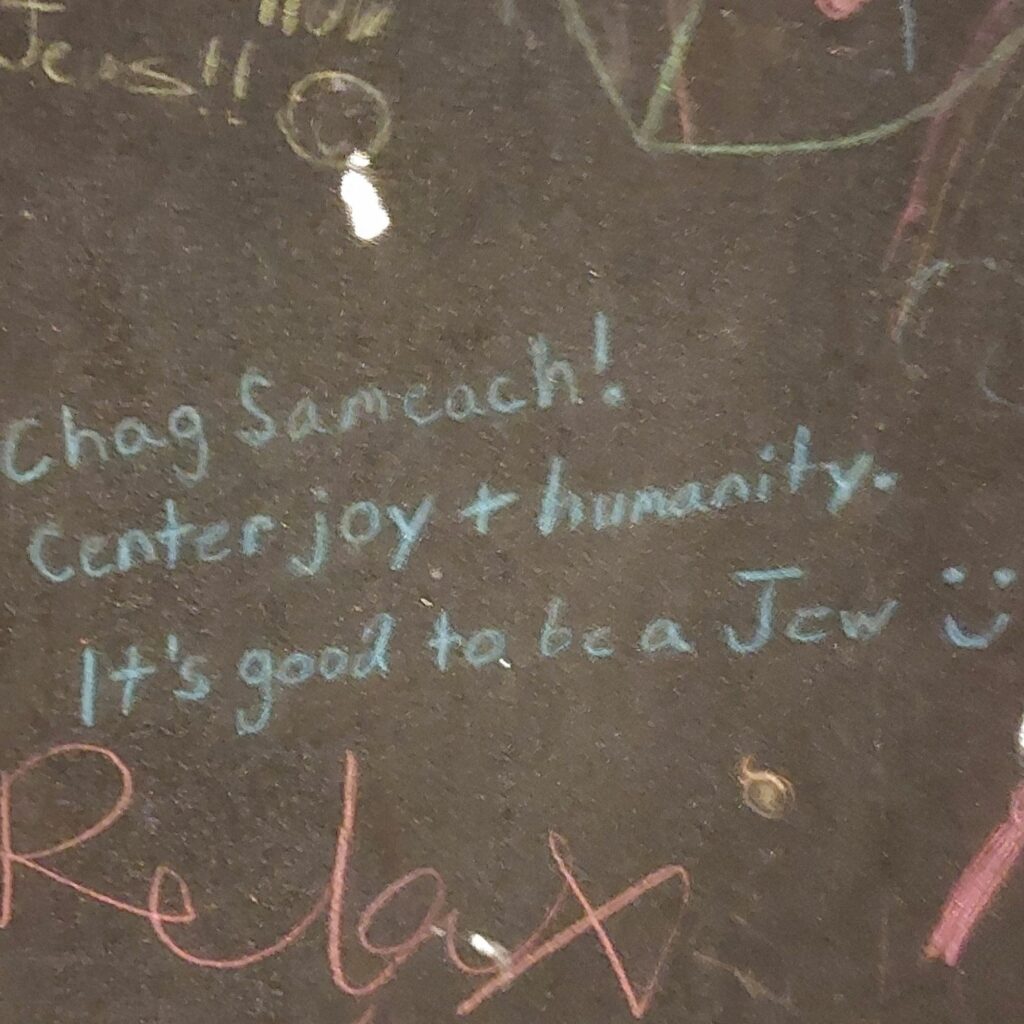 Jews!!
Chag Sameach!
Center joy + humanity.
It's good to be a Jew :)
Relax